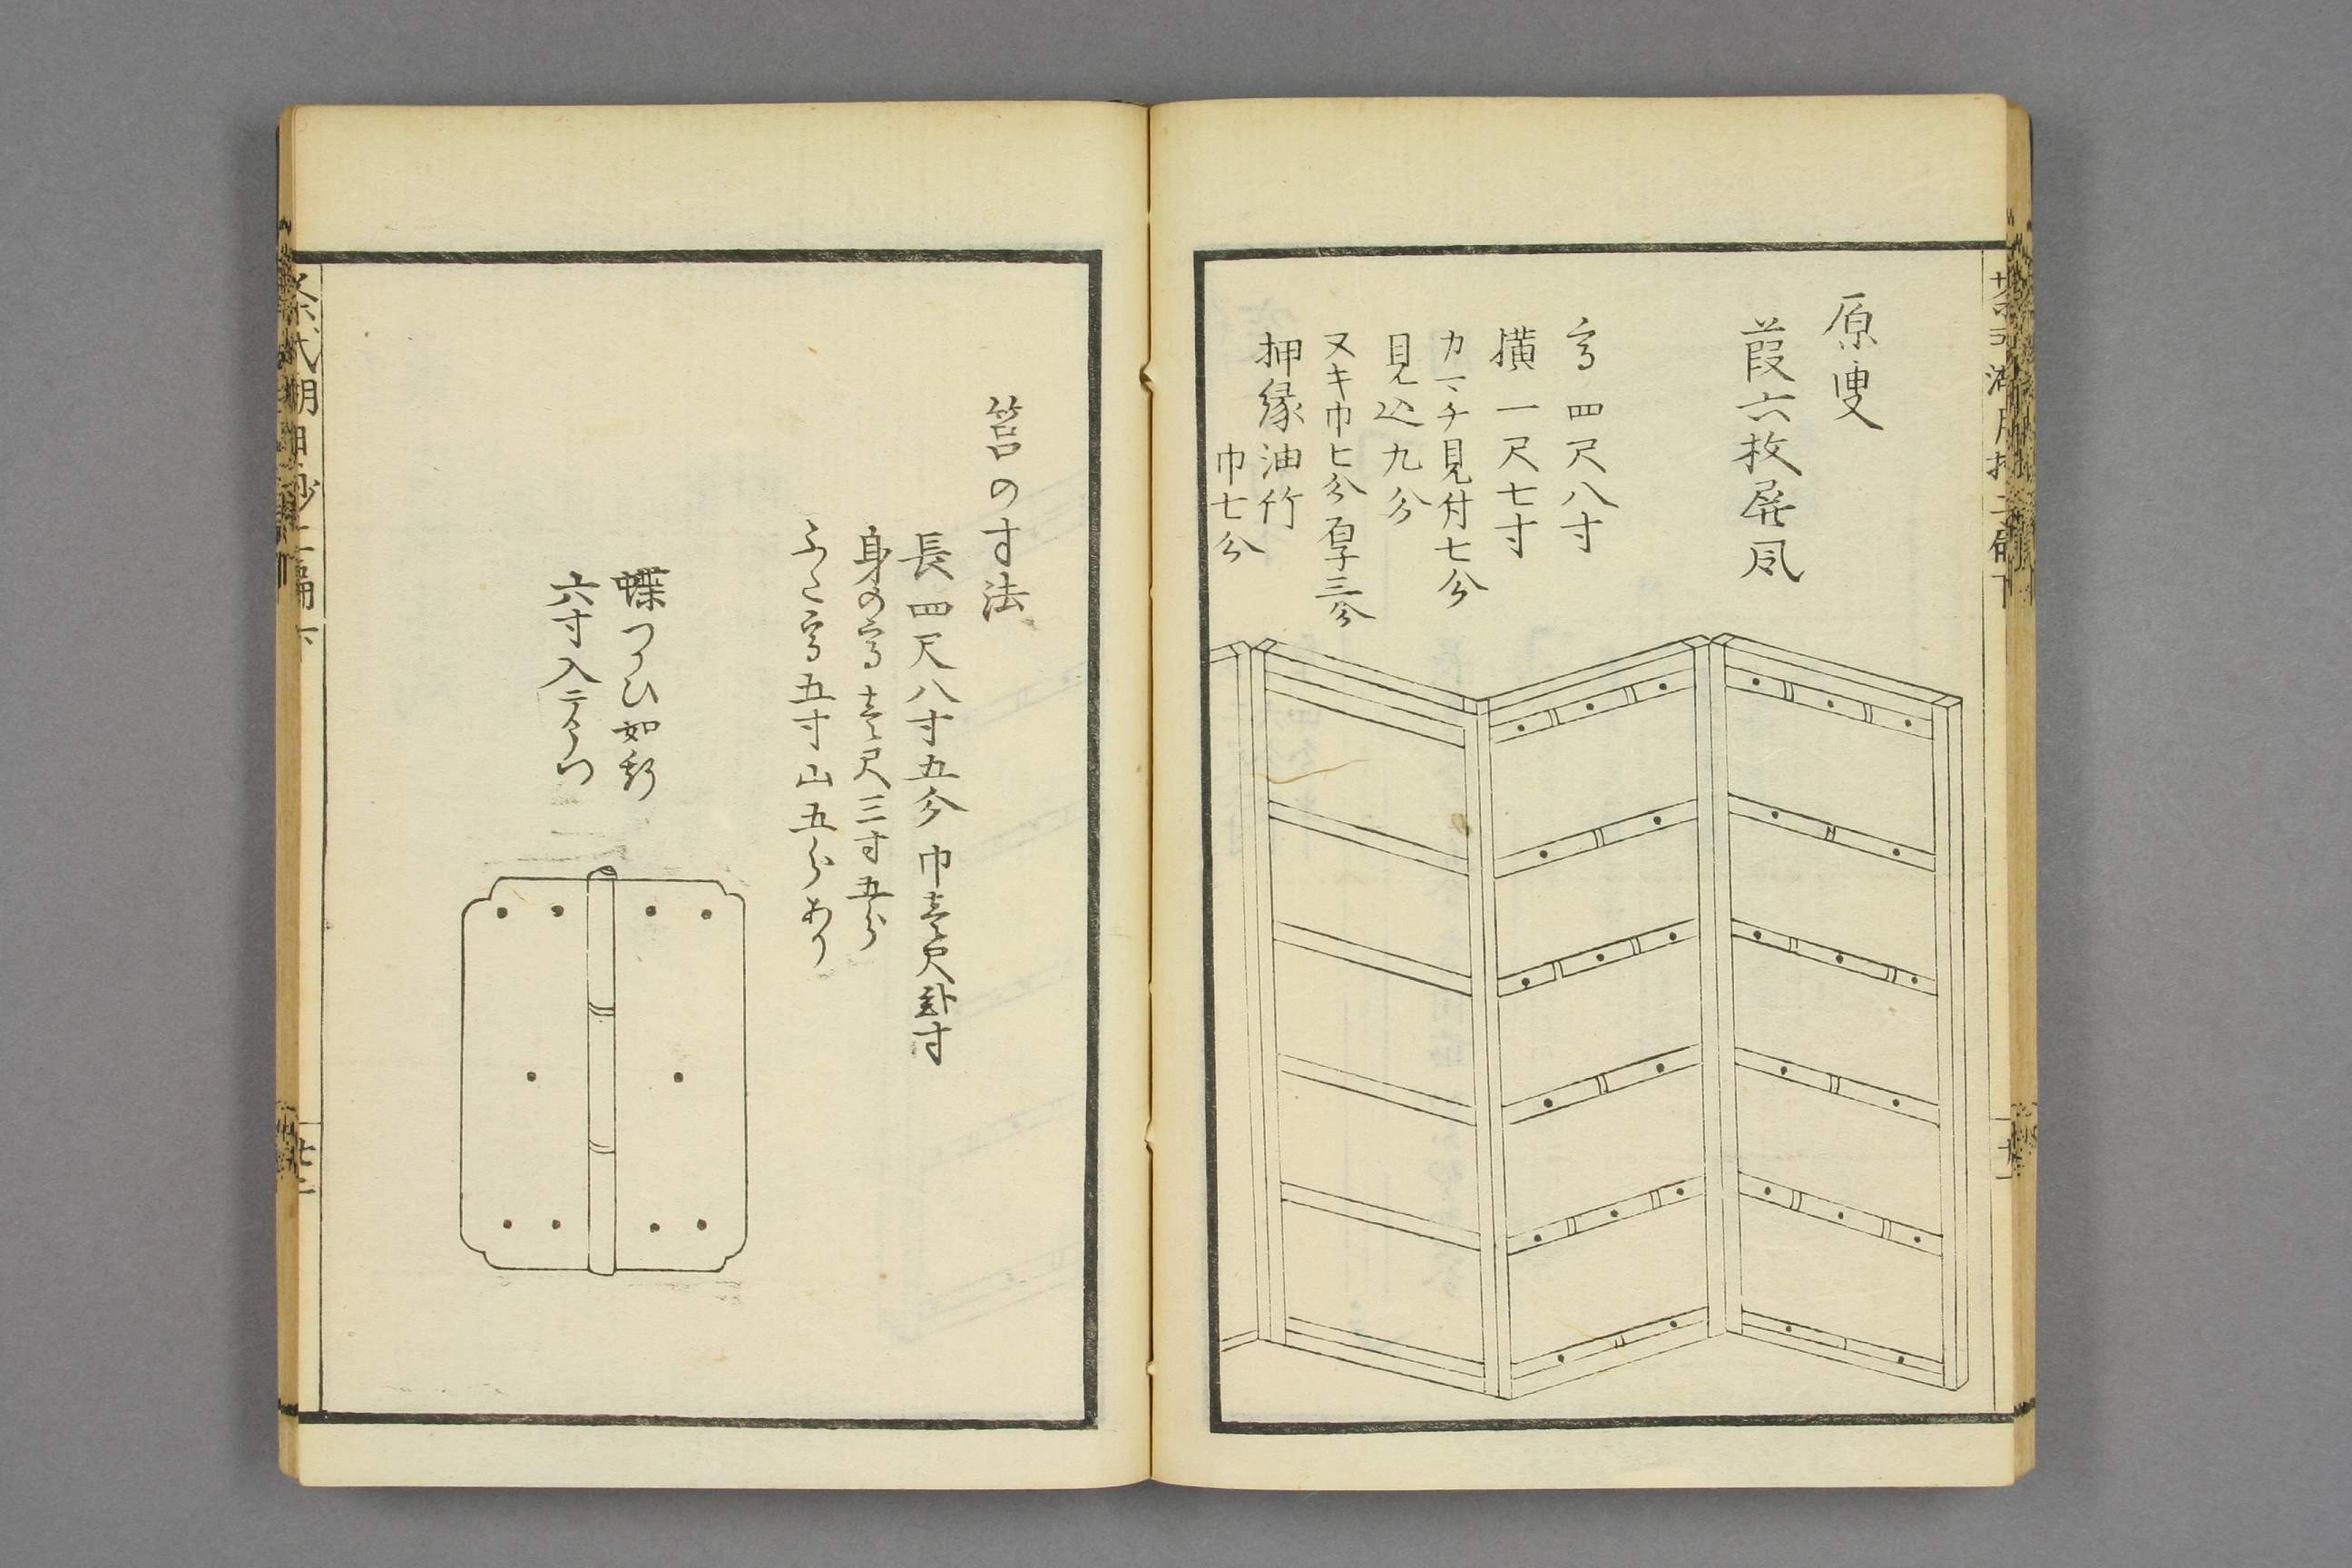 原叟
葭六枚屏風
高四尺八寸
横一尺七寸
カマチ見付七分
見込九分
ヌキ巾七分厚三分
押縁油竹
巾七分
筥の寸法
長四尺八寸五分巾壱尺弐寸
身の高壱尺三寸五分
ふた高五寸山五分あり
蝶つかひ如斯
六寸入二つ